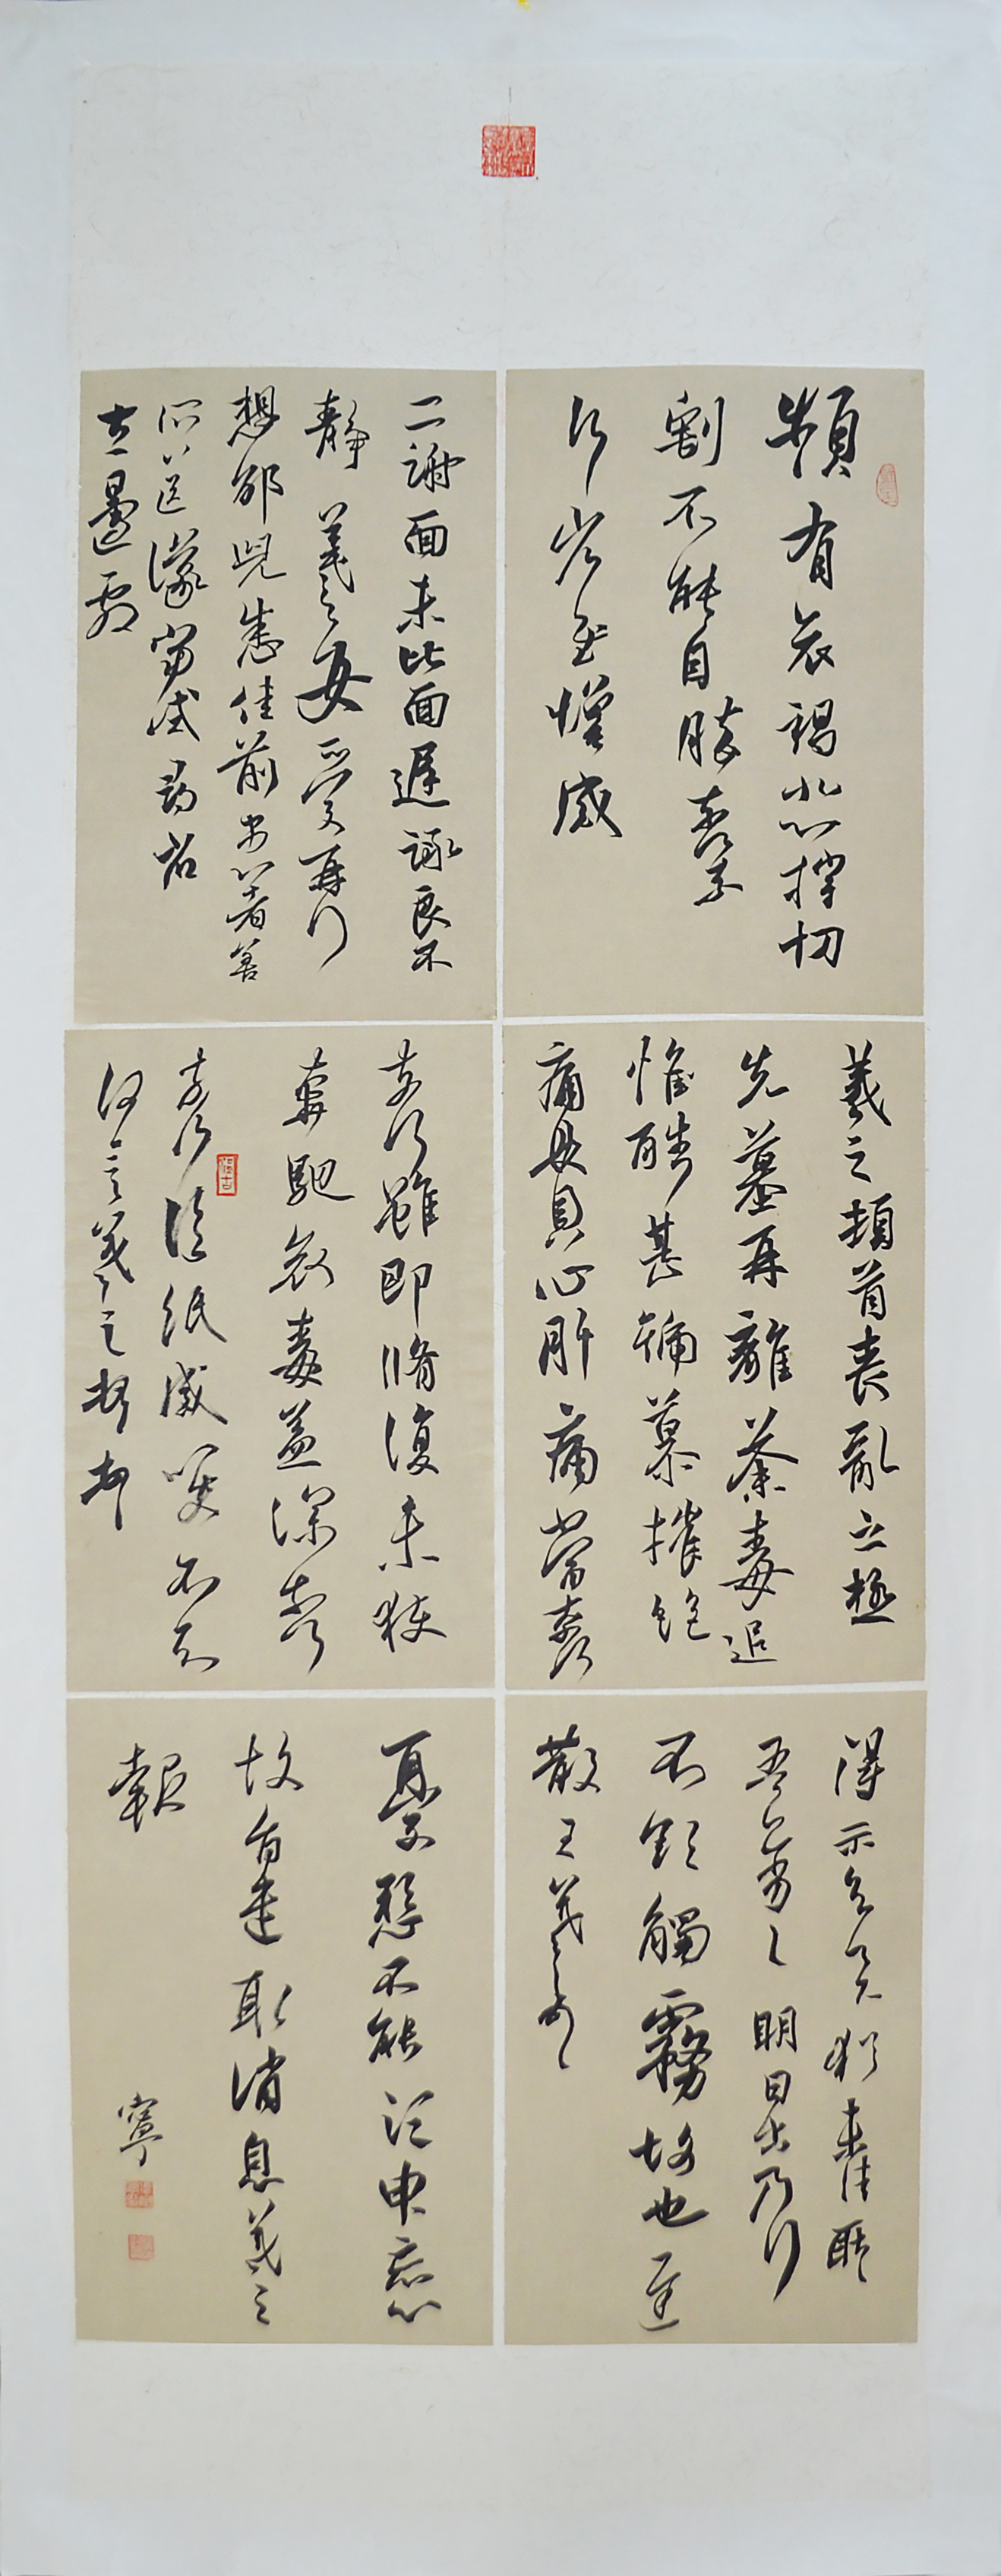 頻有哀禍悲摧切
割不能自勝奈何奈
何省慰增感
二謝面未比面遲詠良不
靜羲之女愛再拜
想邰兒悉佳前患者善
所送議當試尋省
左邊劇
羲之頓首喪亂之極
先墓再離荼毒追
惟酷甚號慕摧絕
痛貫心肝痛當奈何
奈何雖即脩復未獲
奔馳哀毒益深奈何
奈何臨紙感哽不知
何言羲之頓首
得示知足下猶未佳耿
吾亦劣劣明日出乃行
不欲觸霧故也遲
散王羲之頓首
憂懸不能須臾忘心
故旨遣取消息羲之
報
寧